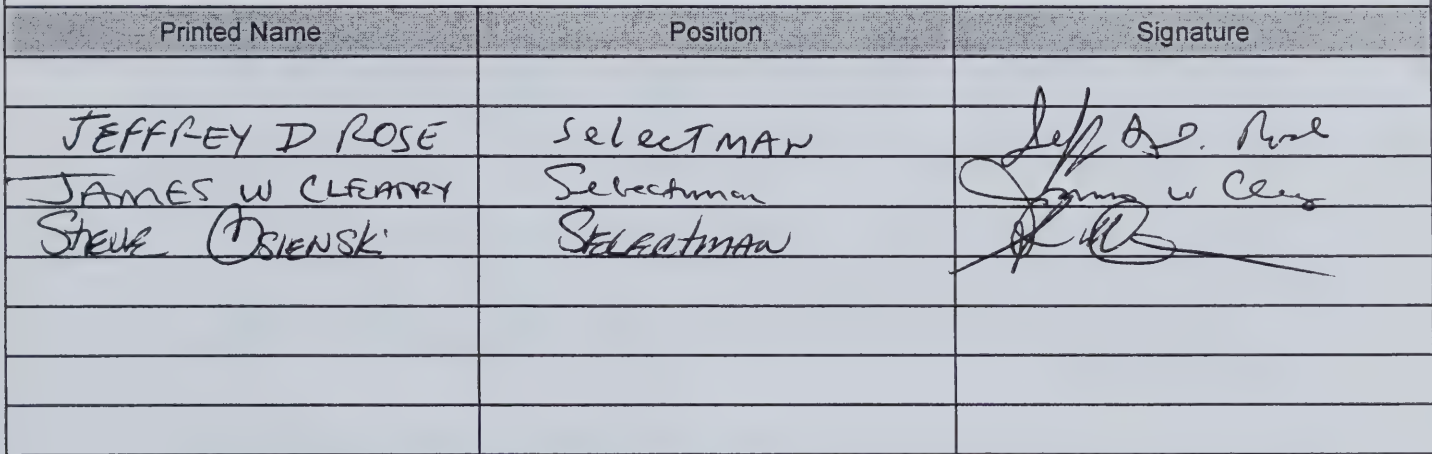 Printed Name Position Signature
JEFFREY D ROSE SelecTMAN Jeff D. Rose
JAMES W CLEARRY Selectman James W Cleary
STEVE OSIENSKI SELECTMAN